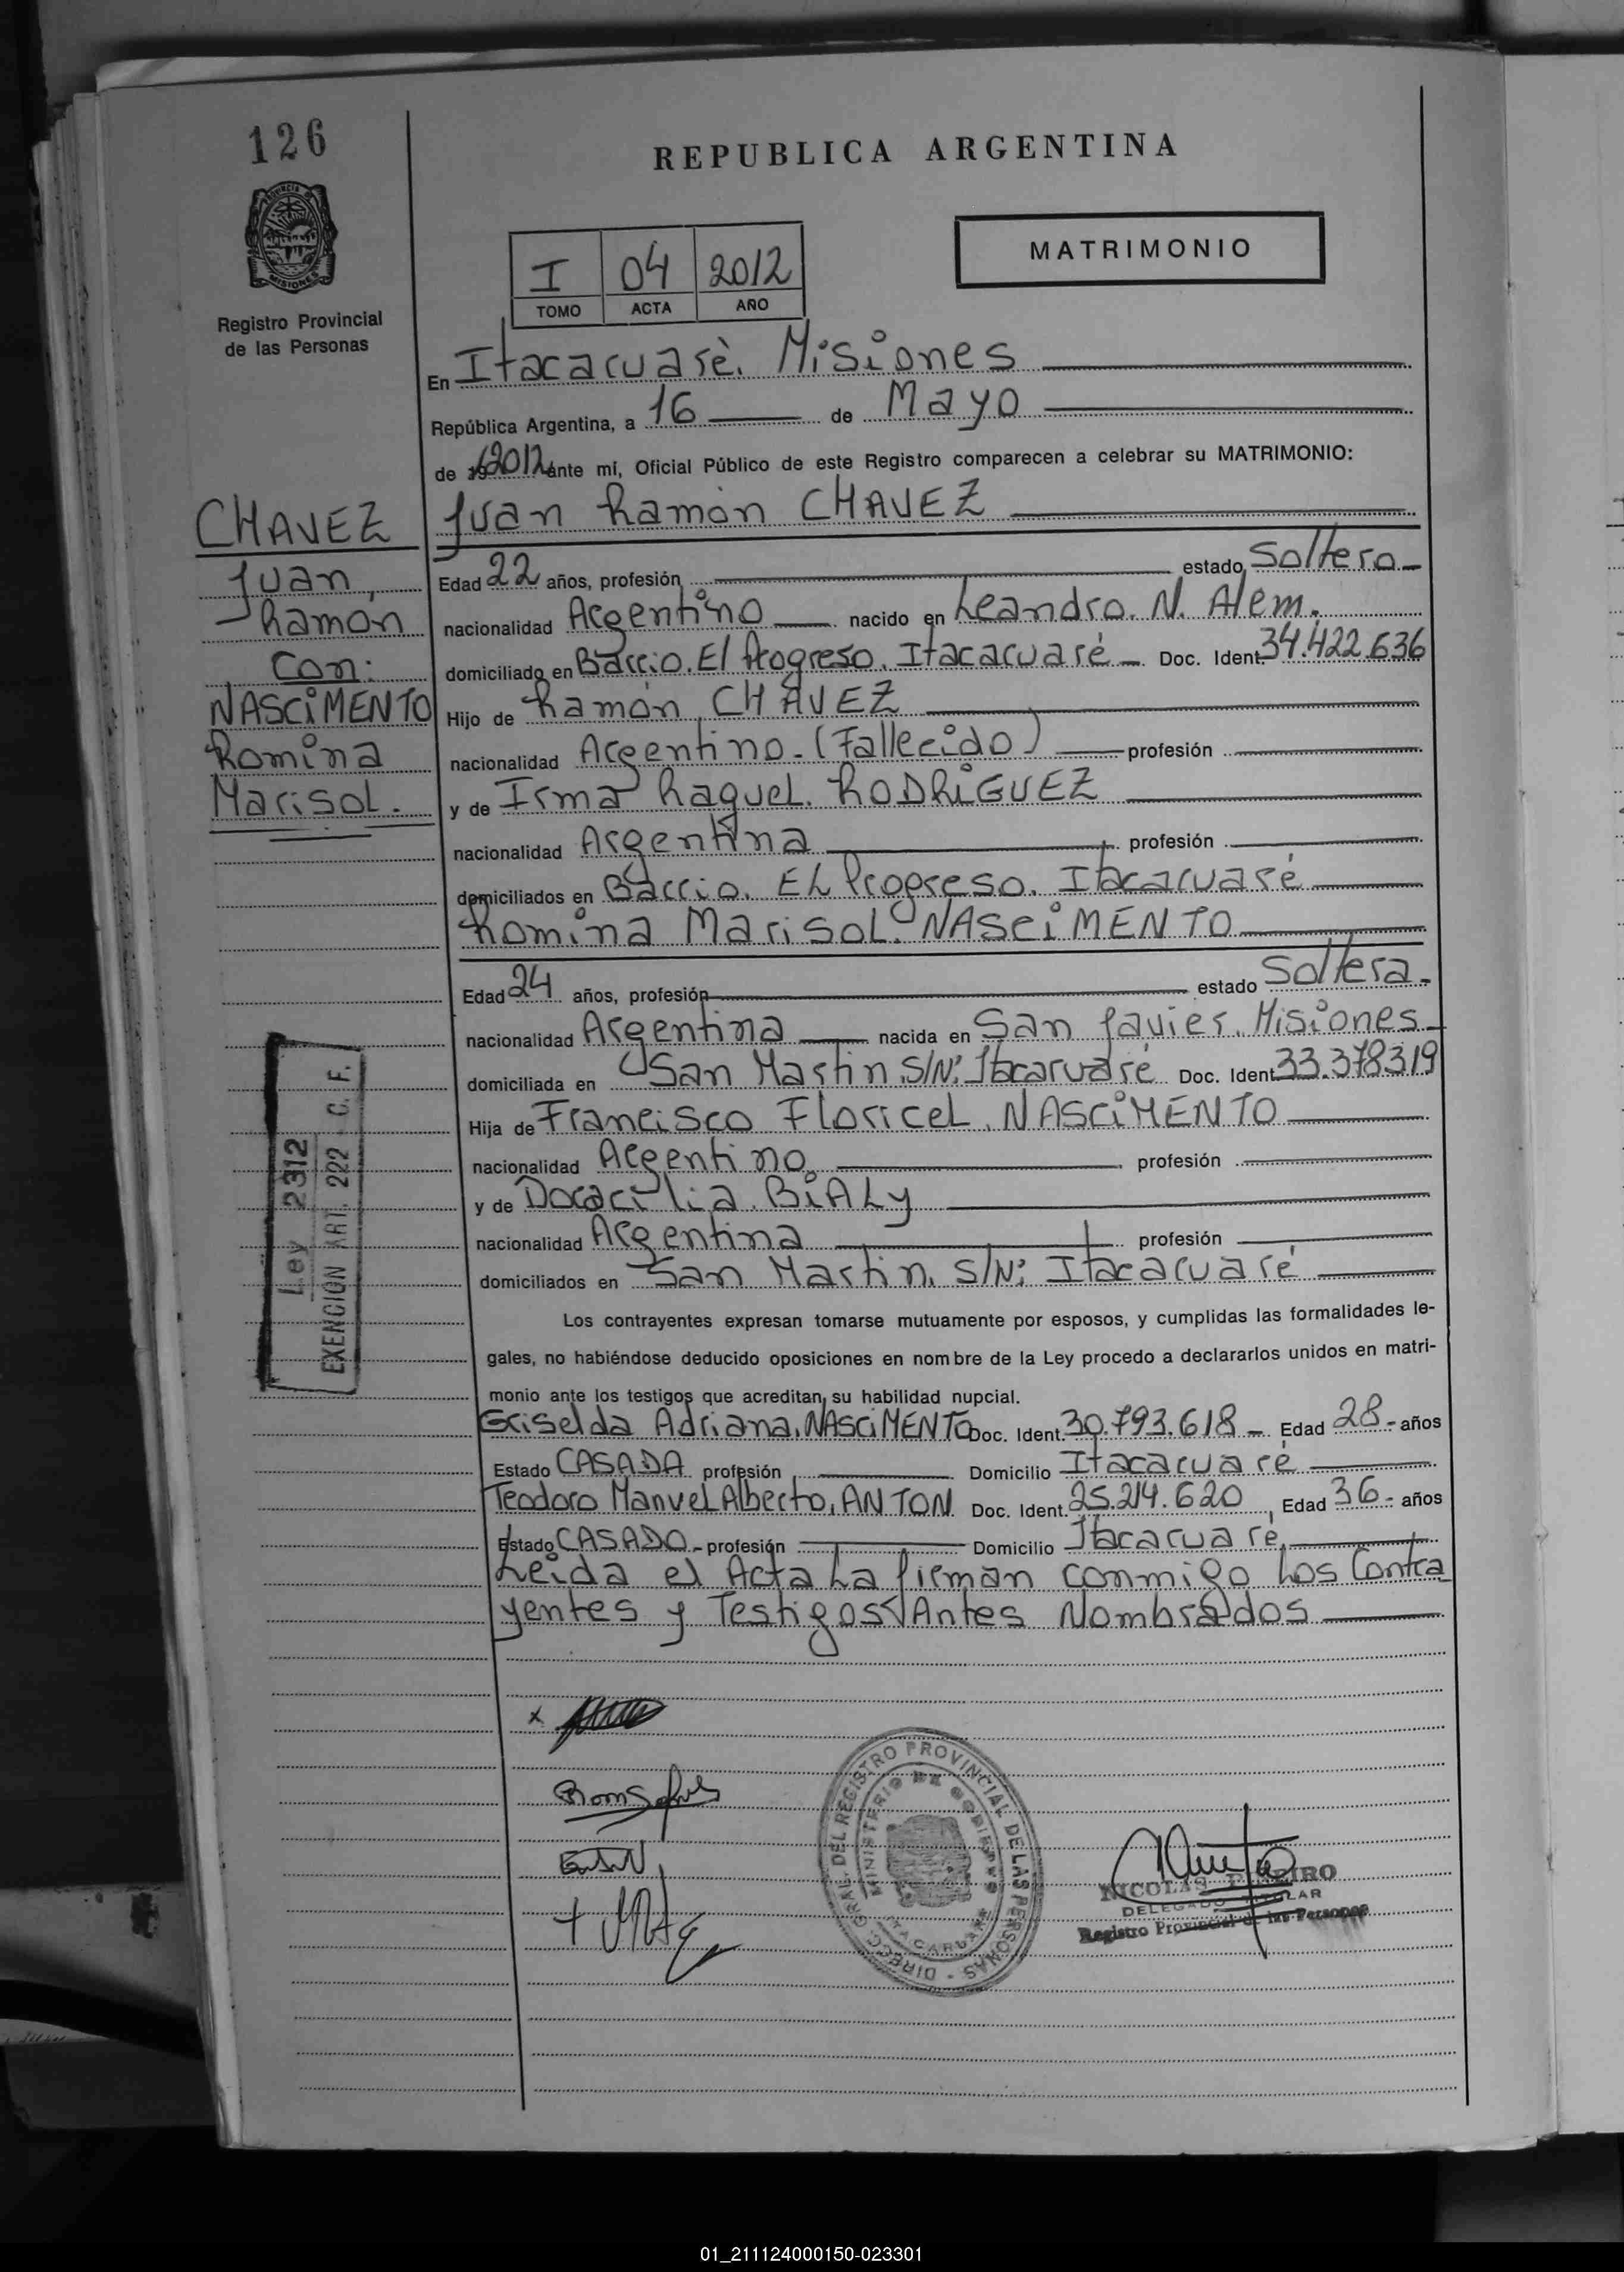 126
REPUBLICA ARGENTINA
MATRIMONIO
PROVINCIA DE
MISIONES
I 04 2012
TOMO ACTA AÑO
Registro Provincial
de las Personas
En Itacaruaré. Misiones
República Argentina, a 16 de Mayo
de 19 2012 ante mí, Oficial Público de este Registro comparecen a celebrar su MATRIMONIO:
CHAVEZ
Juan,
Ramón
Con:
NASCIMENTO
Romina
Marisol.
Juan Ramón CHAVEZ
Edad 22 años, profesión estado Soltero
nacionalidad Argentino nacido en Leandro. N. Alem.
domiciliado en Barrio. El Progreso. Itacaruaré Doc. Ident 34.422.636
Hijo de Ramón CHAVEZ
nacionalidad Argentino. (Fallecido) profesión
y de Irma Raquel. RODRIGUEZ
nacionalidad Argentina profesión
domiciliados en Barrio. EL Progreso. Itacaruaré
Romina Marisol. NASCIMENTO
Edad 24 años, profesión estado Soltera
nacionalidad Argentina nacida en San Javier. Misiones
domiciliada en San Martin. S/Nº; Itacaruaré Doc. Ident 33.378319
Hija de Francisco Floricel. NASCIMENTO
nacionalidad Argentino. profesión
y de Doracilia. BIALY
nacionalidad Argentina profesión
domiciliados en San Martin. S/Nº; Itacaruaré
Ley 2312
EXENCION ART. 222 C. F.
Los contrayentes expresan tomarse mutuamente por esposos, y cumplidas las formalidades le-
gales, no habiéndose deducido oposiciones en nombre de la Ley procedo a declararlos unidos en matri-
monio ante los testigos que acreditan su habilidad nupcial.
Griselda Adriana. NASCIMENTO Doc. Ident. 30.793.618 Edad 28 años
Estado CASADA profesión Domicilio Itacaruaré
Teodoro Manuel Alberto. ANTON Doc. Ident. 25.214.620, Edad 36 años
Estado CASADO profesión Domicilio Itacaruaré.
Leida el Acta La firman conmigo Los Contra
yentes y Testigos Antes Nombrados
DIRECC. GRAL. DEL REGISTRO PROVINCIAL DE LAS PERSONAS
MINISTERIO DE GOBIERNO
ITACARUARE
NICOLAS
DELEGADO TITULAR
Registro Provincial de las Personas
01_211124000150-023301